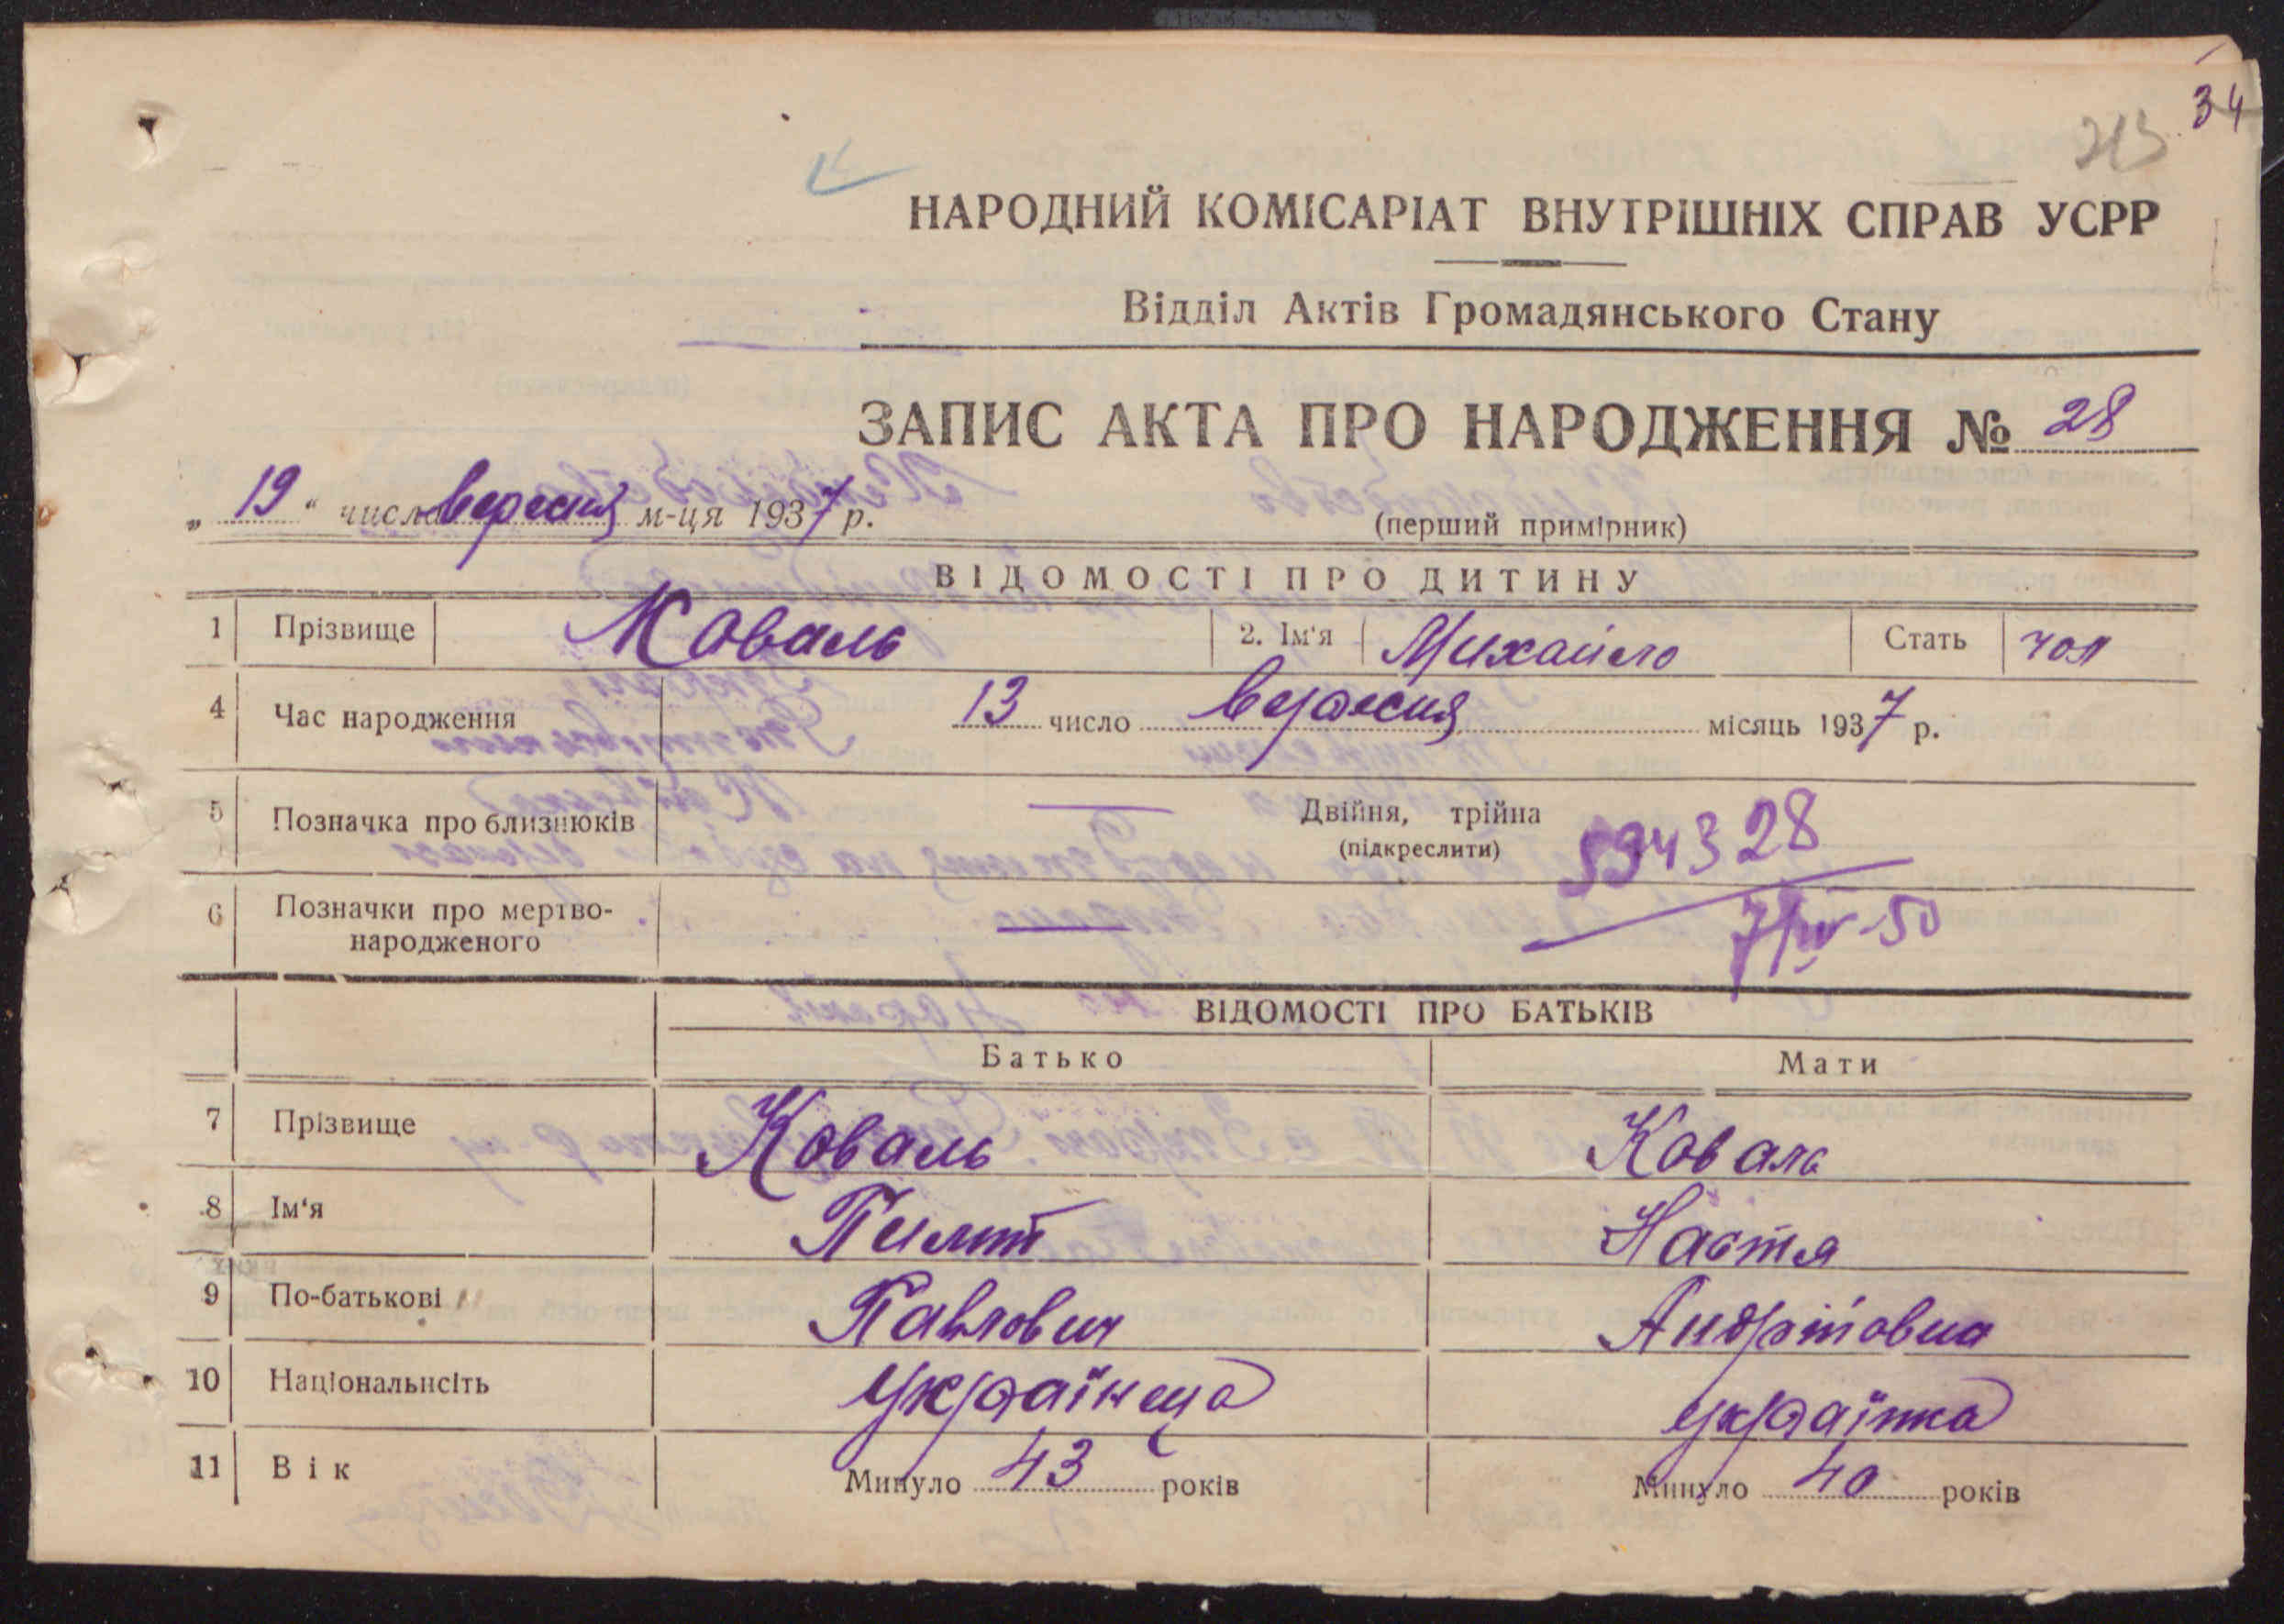 34
213
НАРОДНИЙ КОМІСАРІАТ ВНУТРІШНІХ СПРАВ УСРР
Відділ Актів Громадянського Стану
ЗАПИС АКТА ПРО НАРОДЖЕННЯ № 28
„ 19 “ число вересня м-ця 1937 р.
(перший примірник)
ВІДОМОСТІ ПРО ДИТИНУ
1 Прізвище Коваль 2. Ім'я Михайло Стать чол
4 Час народження 13 число вересня місяць 1937 р.
5 Позначка про близнюків — Двійня, трійна
(підкреслити)
594328
6 Позначки про мертво-
народженого —
7/IV-50
ВІДОМОСТІ ПРО БАТЬКІВ
Батько Мати
7 Прізвище Коваль Коваль
8 Ім'я Пилип Настя
9 По-батькові Павлович Андріївна
10 Національність українець українка
11 Вік Минуло 43 років Минуло 40 років